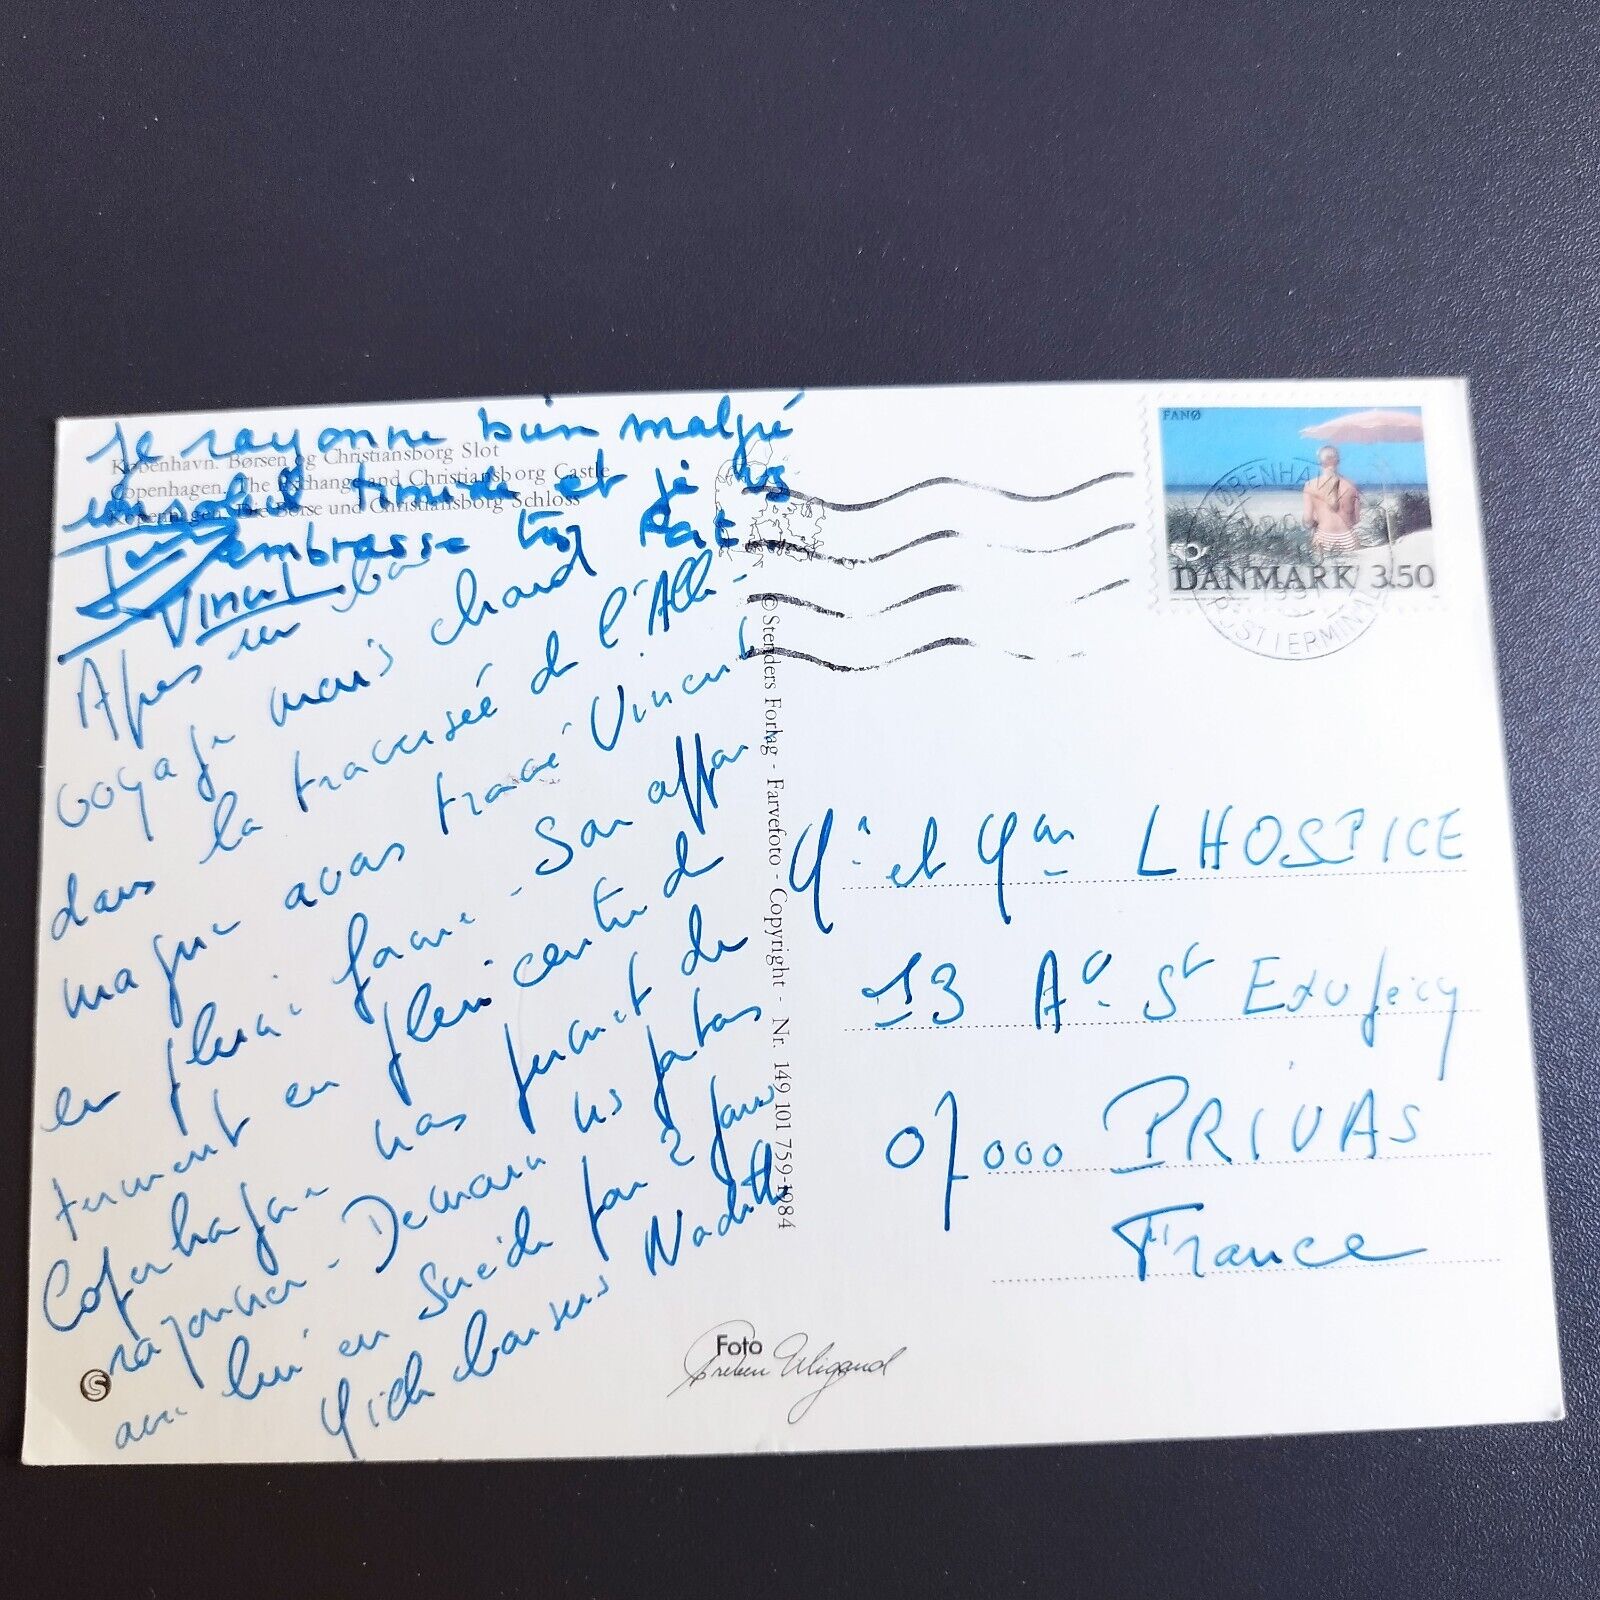 Je rayonne bien malgré
un soleil timide et je vs
embrasse très fort
Vincent
København. Børsen og Christiansborg Slot
Copenhagen. The Exchange and Christiansborg Castle
Kopenhagen. Die Börse und Christiansborg Schloss
Après un bon
voyage mais chaud
dans la traversée de l'Alle-
magne avons trouvé Vincent
en pleine forme. Son appar
tement en plein centre de
Copenhague nous permet de
rayonner. Demain ns partons
avec lui en Suède pour 2 jours
Gros baisers
© Stenders Forlag - Farvefoto - Copyright - Nr. 149 101 759-1984
Foto
Preben Wigand
S
FANØ
DANMARK 3.50
KØBENHAVN
1991
POSTTERMINAL
Mr et Mme LHOSPICE
13 Av. St Exupéry
07000 PRIVAS
France